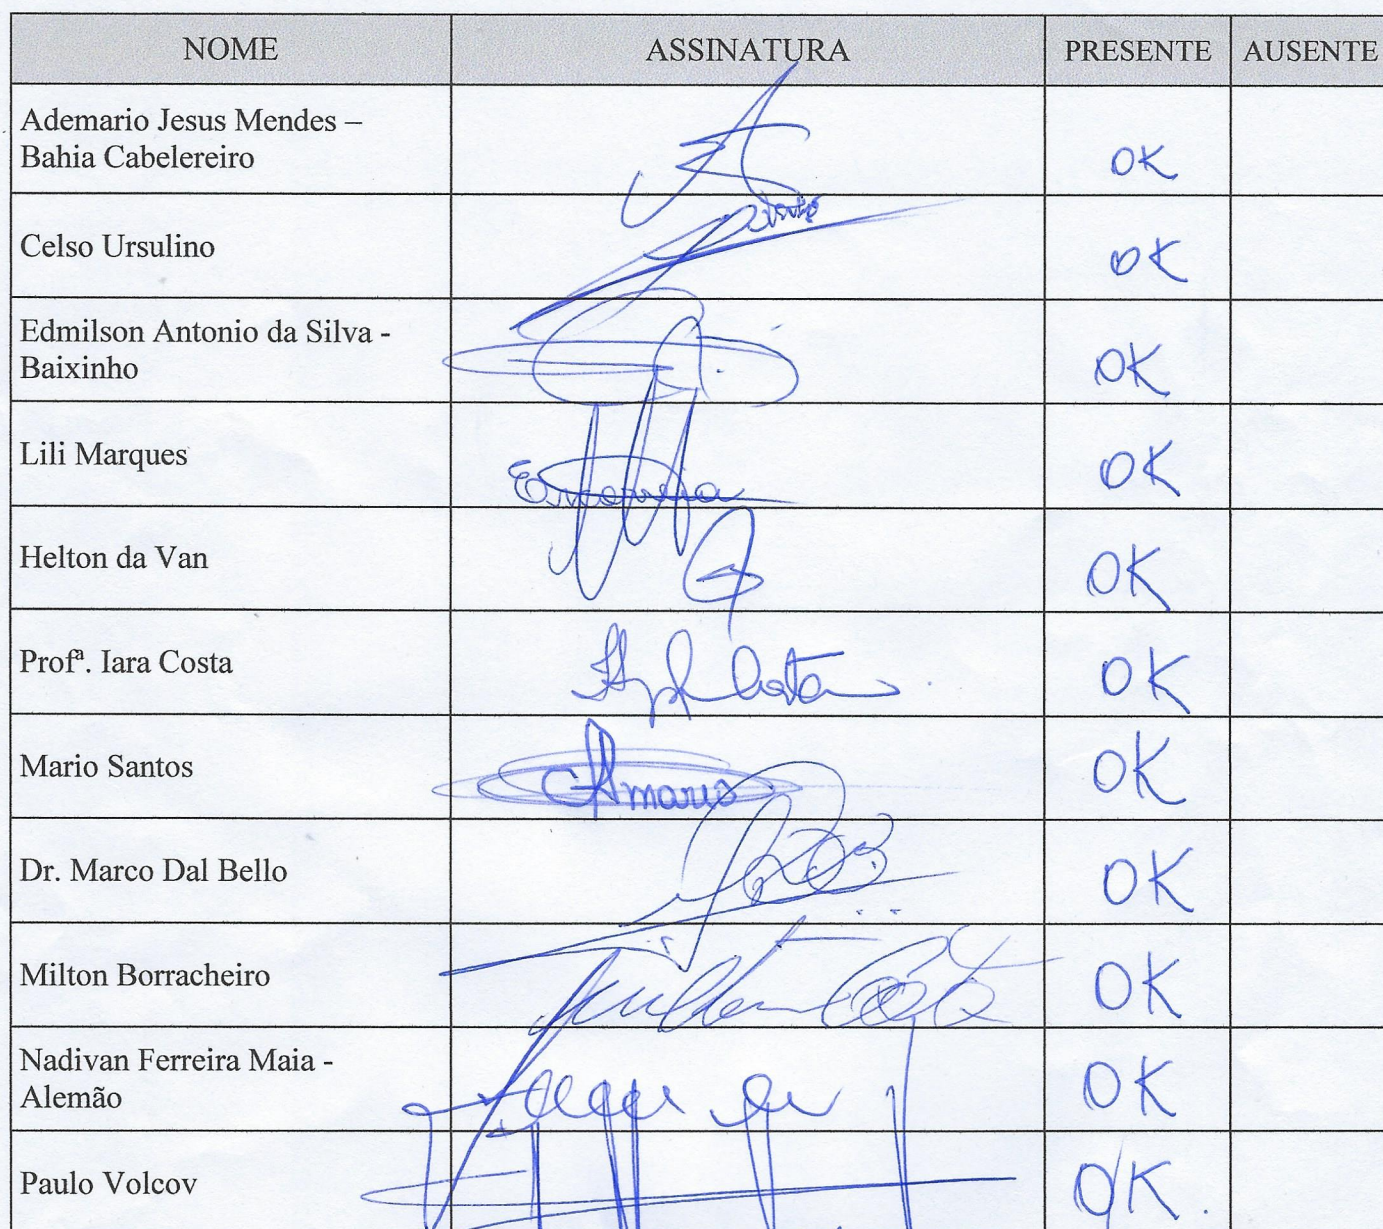 NOME ASSINATURA PRESENTE AUSENTE
Ademario Jesus Mendes –
Bahia Cabelereiro
OK
Celso Ursulino
OK
Edmilson Antonio da Silva -
Baixinho
OK
Lili Marques
OK
Helton da Van
OK
Profª. Iara Costa
Costa
OK
Mario Santos
mario
OK
Dr. Marco Dal Bello
OK
Milton Borracheiro
OK
Nadivan Ferreira Maia -
Alemão
OK
Paulo Volcov
OK.